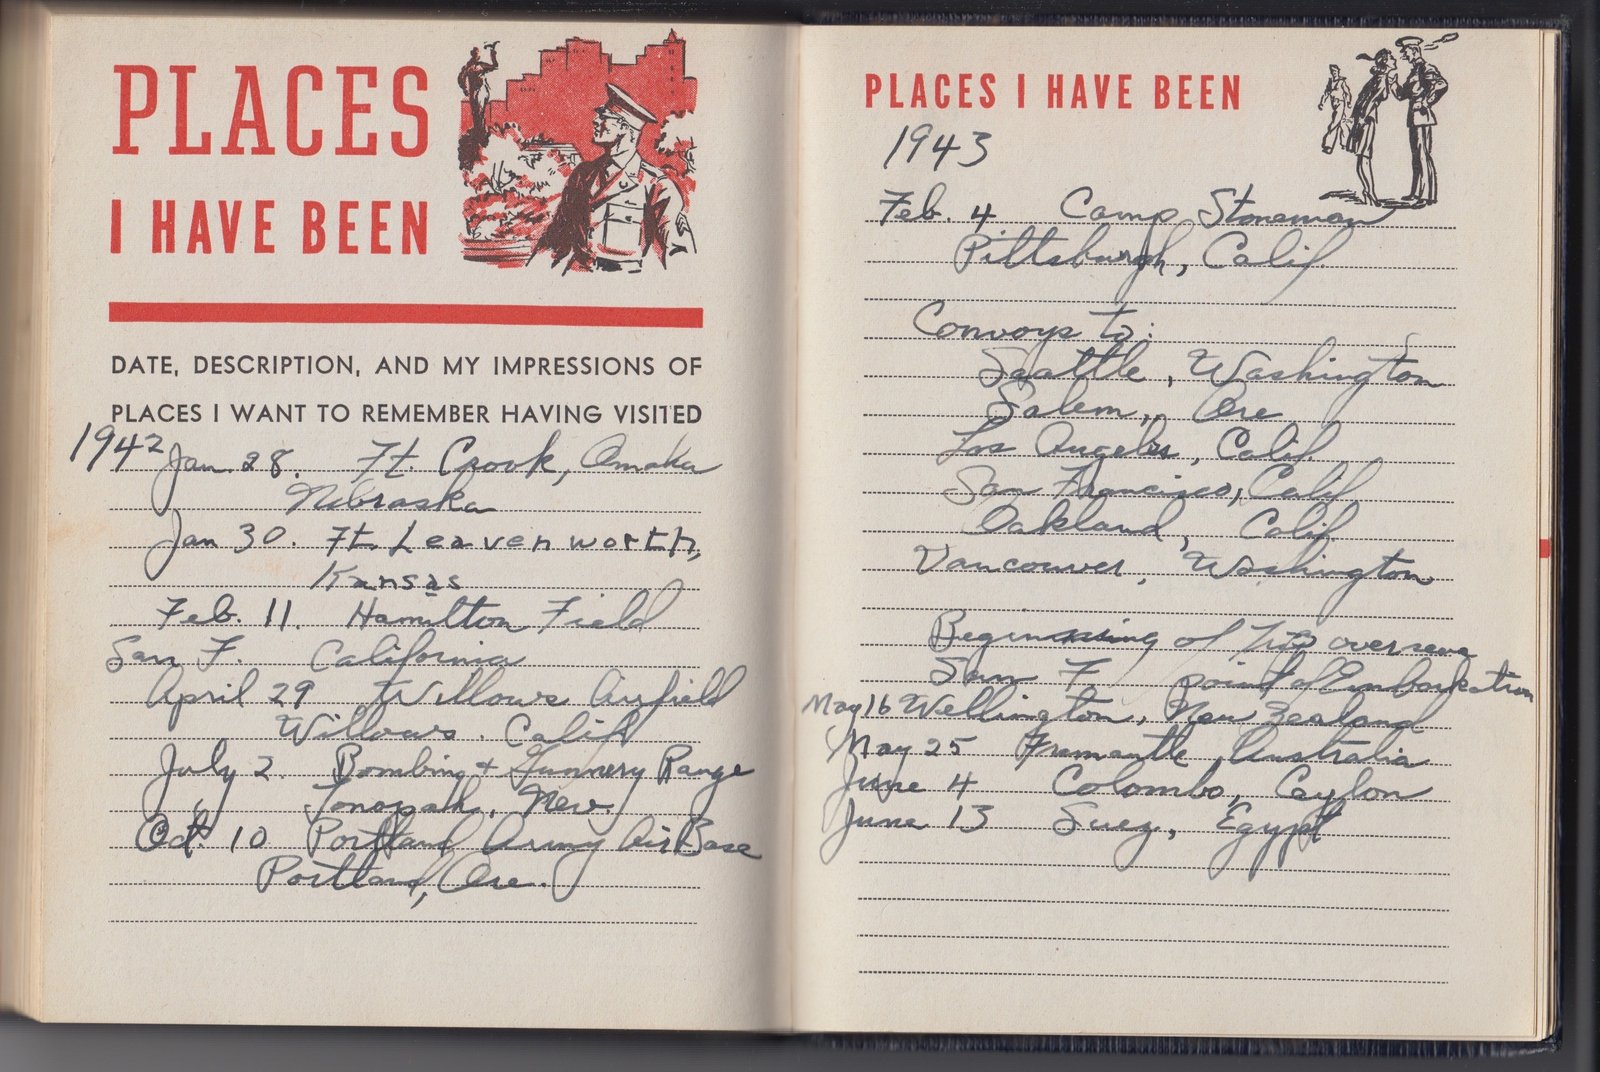 PLACES
I HAVE BEEN
DATE, DESCRIPTION, AND MY IMPRESSIONS OF
PLACES I WANT TO REMEMBER HAVING VISITED
1942 Jan. 28. Ft. Crook, Omaha
Nebraska
Jan 30. Ft. Leavenworth,
Kansas
Feb. 11. Hamilton Field
San F. California
April 29 Willows Airfield
Willows. Calif
July 2. Bombing + Gunnery Range
Tonopah, Nev.
Oct. 10 Portland Army Air Base
Portland, Ore.
PLACES I HAVE BEEN
1943
Feb. 4 Camp Stoneman
Pittsburgh, Calif.
Convoys to:
Seattle, Washington
Salem, Ore
Los Angeles, Calif.
San Francisco, Calif
Oakland, Calif.
Vancouver, Washington
Beginning of Trip overseas
San F point of Embarkation
May 16 Wellington, New Zealand
May 25 Fremantle, Australia
June 4 Colombo, Ceylon
June 13 Suez, Egypt